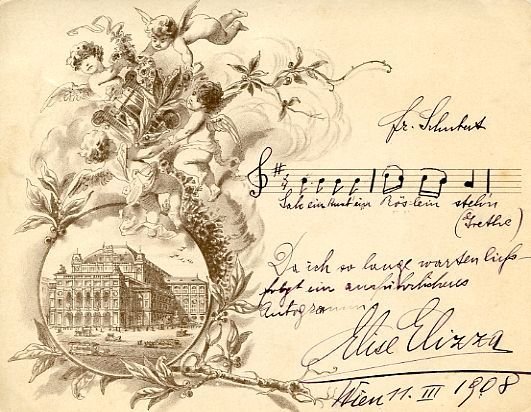 Fr. Schubert
Sah ein Knab ein Röslein stehn
(Goethe)
Da ich so lange warten ließ
folgt ein ausführliches
Autogramm
Elise Elizza
Wien 11. III 1908